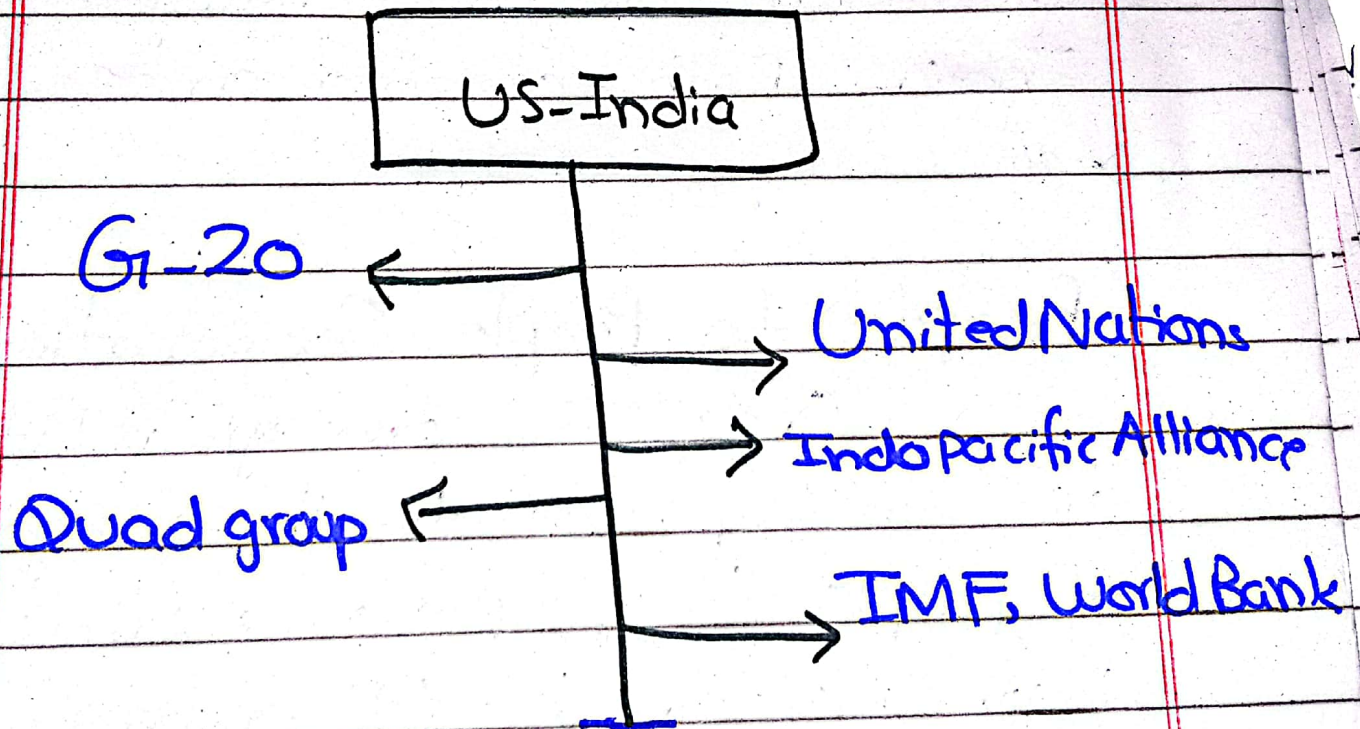 US-India
G-20
United Nations
Indopacific Alliance
Quad group
IMF, World Bank